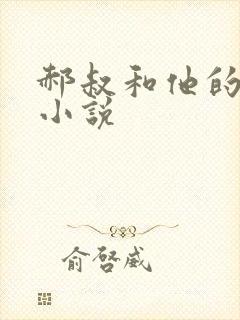 郝叔和他的
小说
俞啓威